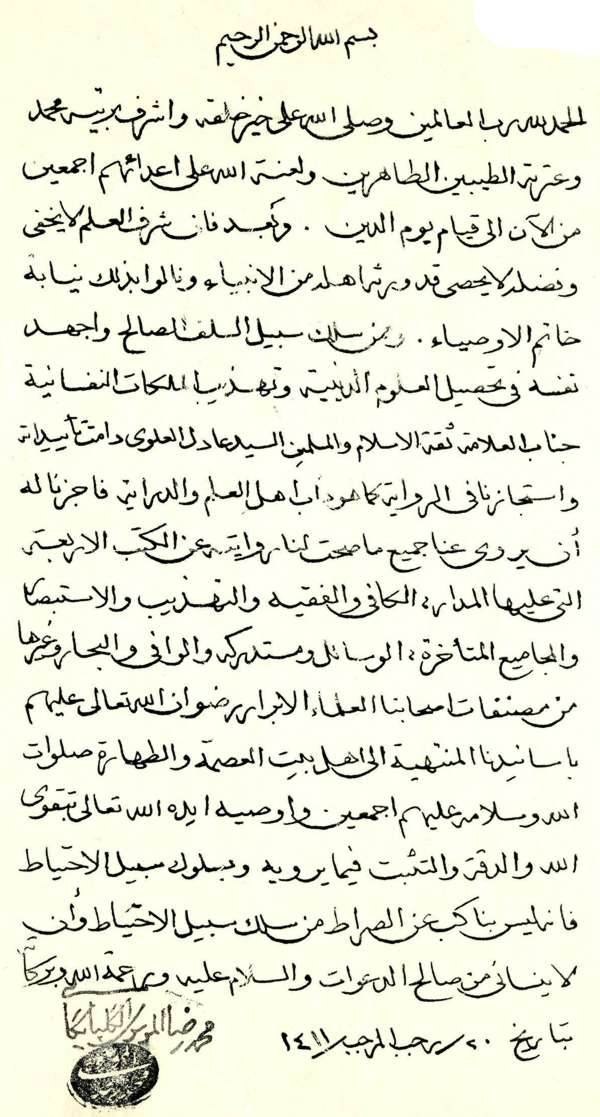 بسم الله الرحمن الرحيم
الحمد لله رب العالمين وصلى الله على خير خلقه واشرف بريته محمد
وعترته الطيبين الطاهرين ولعنة الله على اعدائهم اجمعين
من الآن الى قيام يوم الدين . وبعد فان شرف العلم لا يخفى
وفضله لا يحصى قد ورثه اهله من الانبياء ونالوا بذلك نيابة
خاتم الاوصياء . وممن سلك سبيل السلف الصالح واجهد
نفسه في تحصيل العلوم الدينية وتهذيب الملكات النفسانية
جناب العلامة ثقة الاسلام والمسلمين السيد عادل العلوي دامت تأييداته
واستجازنا في الرواية كما هو دأب اهل العلم والدراية فاجزنا له
أن يروي عنا جميع ما صحت لنا روايته عن الكتب الاربعة
التي عليها المدار : الكافي والفقيه والتهذيب والاستبصار
والمجاميع المتأخرة : الوسائل ومستدركه والوافي والبحار وغيرها
من مصنفات اصحابنا العلماء الابرار رضوان الله تعالى عليهم
باسانيدنا المنتهية الى اهل بيت العصمة والطهارة صلوات
الله وسلامه عليهم اجمعين واوصيه ايده الله تعالى بتقوى
الله والدقة والتثبت فيما يرويه وبسلوك سبيل الاحتياط
فانه ليس بناكب عن الصراط من سلك سبيل الاحتياط وأن
لا ينساني من صالح الدعوات والسلام عليه ورحمة الله وبركاته
بتاريخ ٢٠ / رجب المرجب / ١٤١١
محمد رضا الموسوي الگلپايگاني